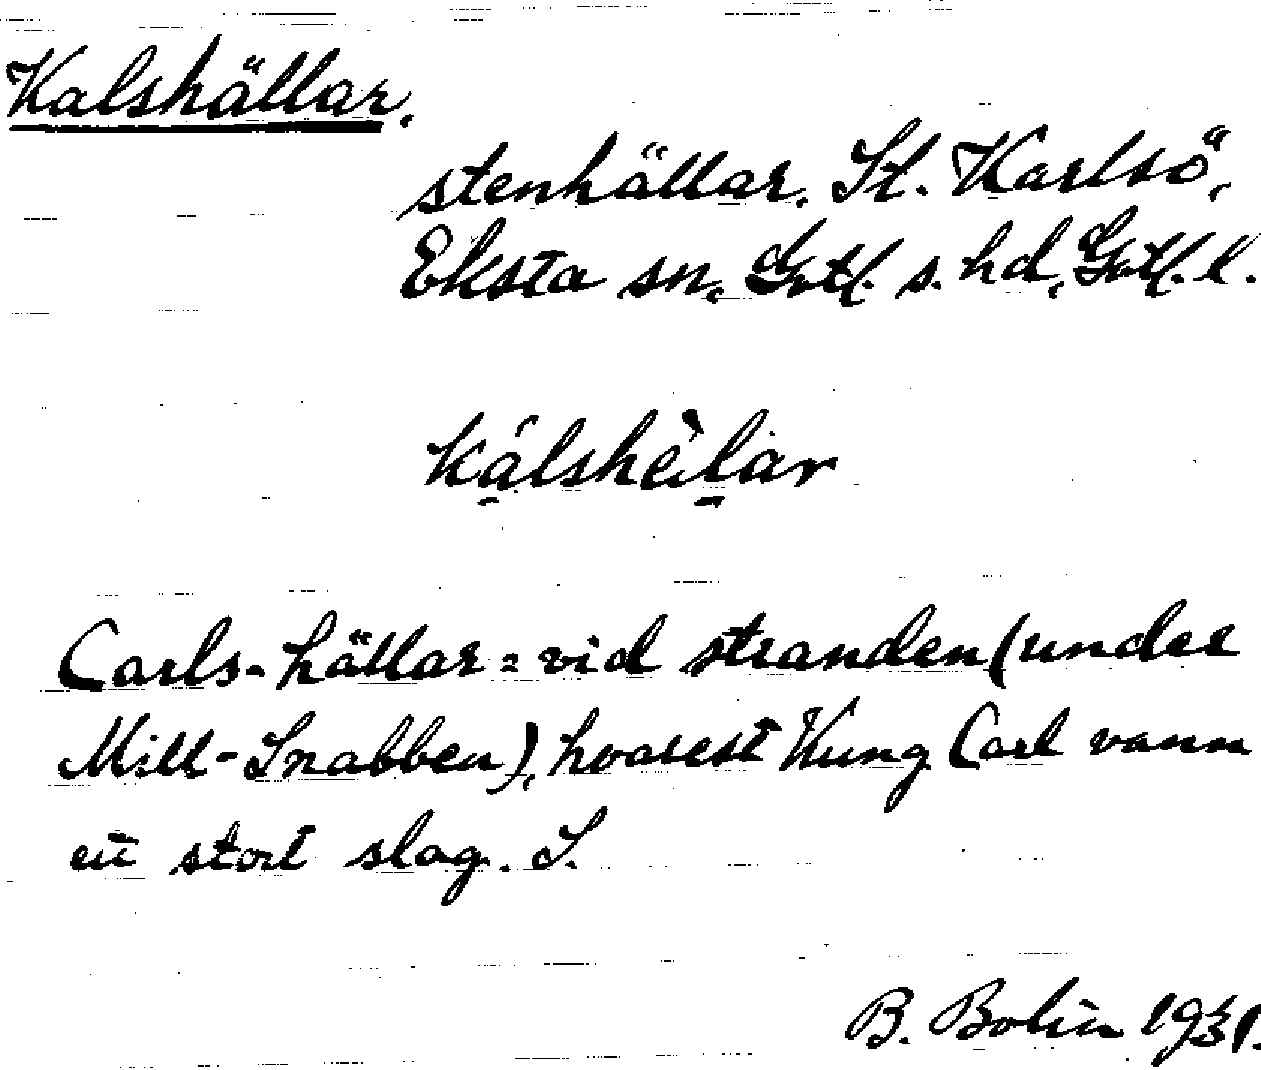 Kalshällar.
stenhällar. St. Karlsö,
Eksta sn, Gotl. s. hd, Gotl. l.
kálshèlar
Carls-hällar = vid stranden (under
Mill-Snabben), hvarest Kung Carl vann
ett stort slag. S.
B. Bolin 1931.